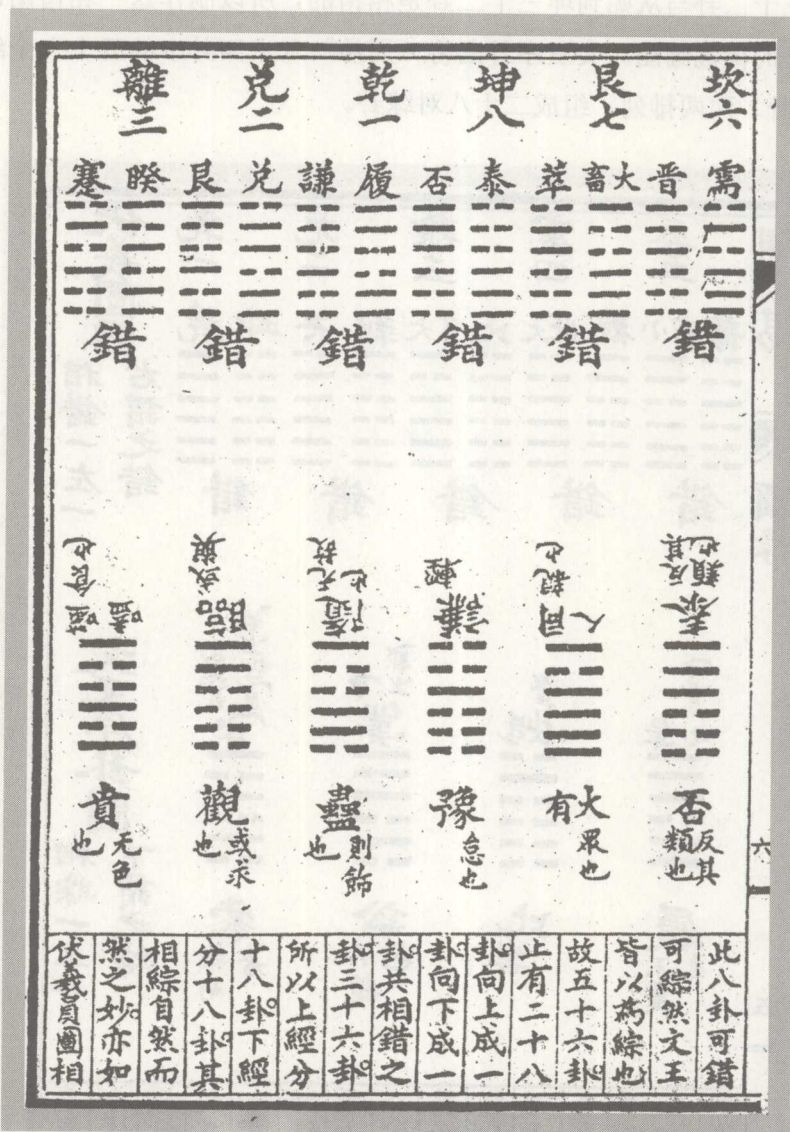 坎六
艮七
坤八
乾一
兌二
離三
需
晋
大畜
萃
泰
否
履
謙
兌
艮
睽
蹇
錯
錯
錯
錯
錯
錯
泰反其類也
同人親也
謙輕
隨无故也
臨或與
噬嗑食也
否反其類也
大有眾也
豫怠也
蠱則飭也
觀或求也
賁无色也
六
此八卦可錯
可綜然文王
皆以為綜也
故五十六卦
止有二十八
卦向上成一
卦向下成一
卦共相錯之
卦三十六卦
所以上經分
十八卦下經
分十八卦其
相綜自然而
然之妙亦如
伏羲員圖相